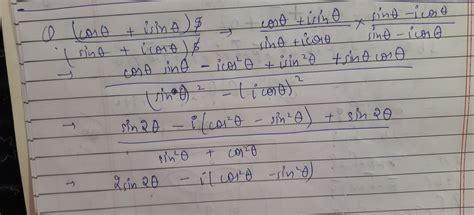 Q (cosθ + isinθ)8 → cosθ + isinθ / sinθ + icosθ × sinθ - icosθ / sinθ - icosθ
(sinθ + icosθ)8
→ cosθ sinθ - icos²θ + isin²θ + sinθ cosθ
(sinθ)² - (icosθ)²
→ sin2θ - i(cos²θ - sin²θ) + sin2θ
sin²θ + cos²θ
→ 2sin2θ - i(cos²θ - sin²θ)